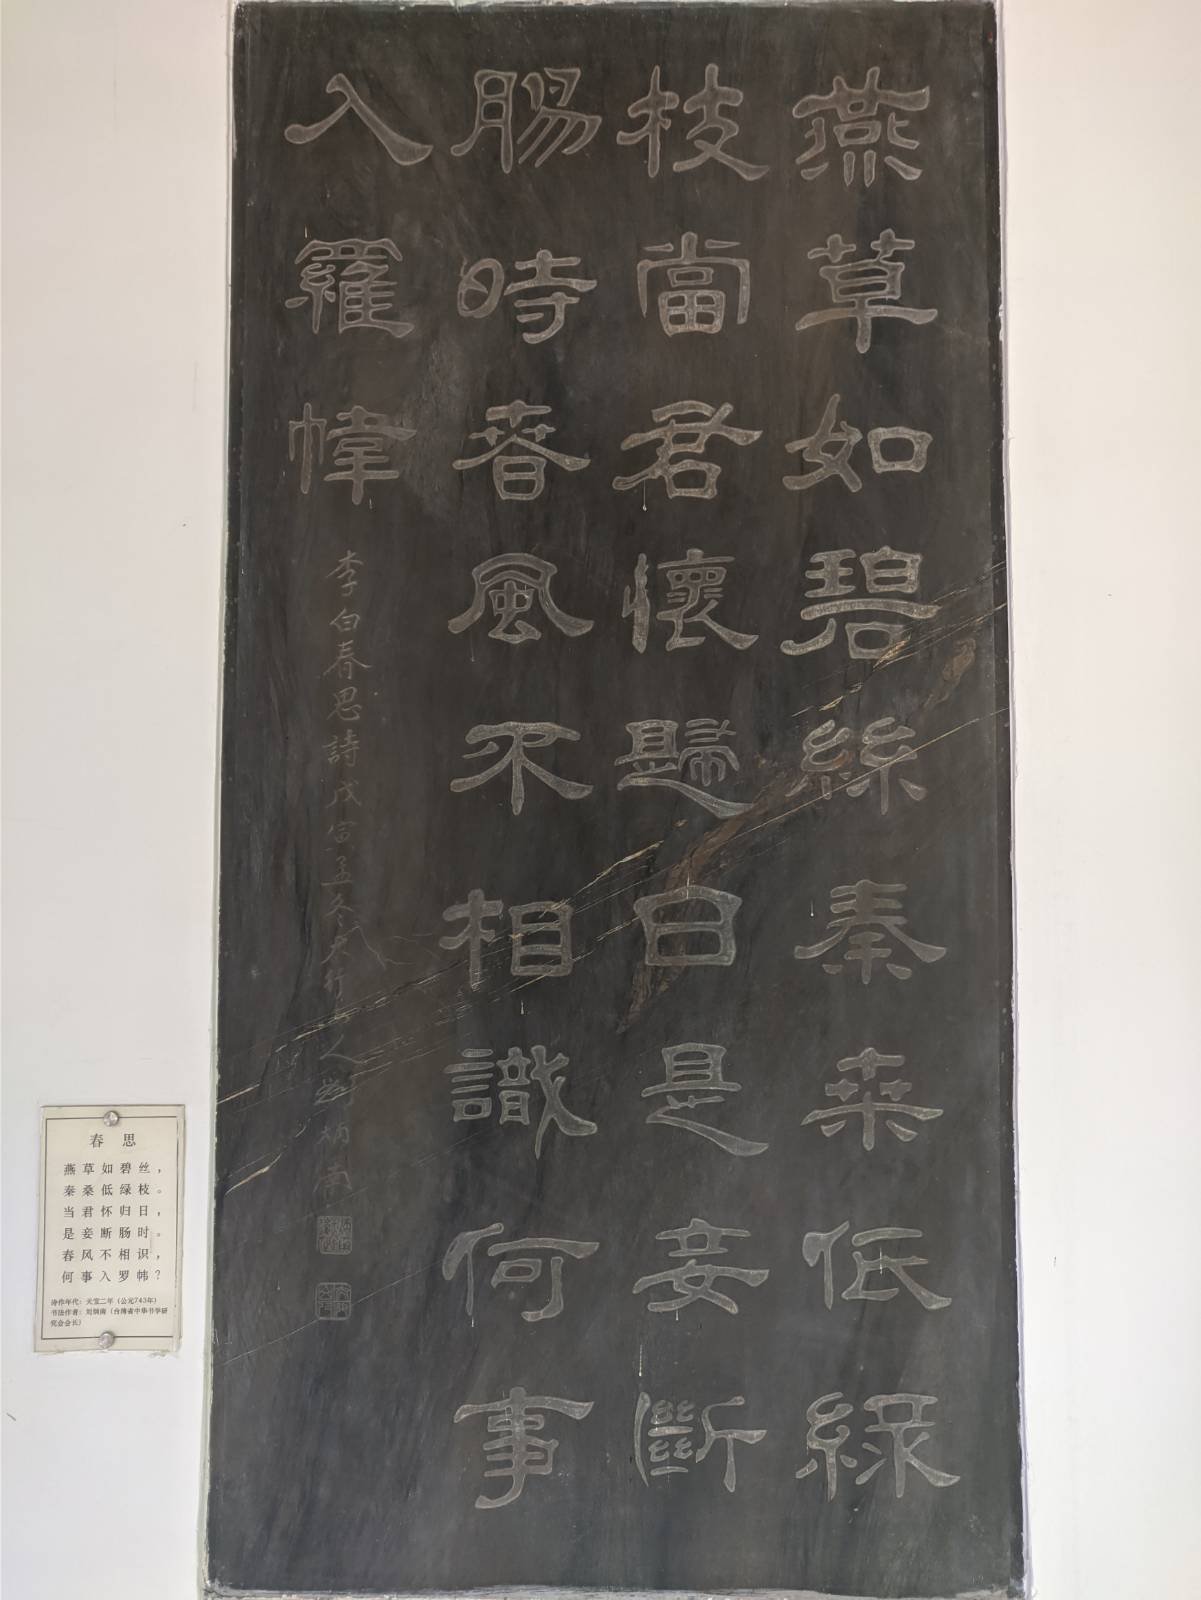 燕草如碧絲秦桒低緑
枝當君懷歸日是妾斷
腸時春風不相識何事
入羅幃
李白春思詩戊寅孟冬太行山人劉炳南
春思
燕草如碧丝，
秦桑低绿枝。
当君怀归日，
是妾断肠时。
春风不相识，
何事入罗帏？
诗作年代：天宝二年（公元743年）
书法作者：刘炳南（台湾省中华书学研
究会会长）